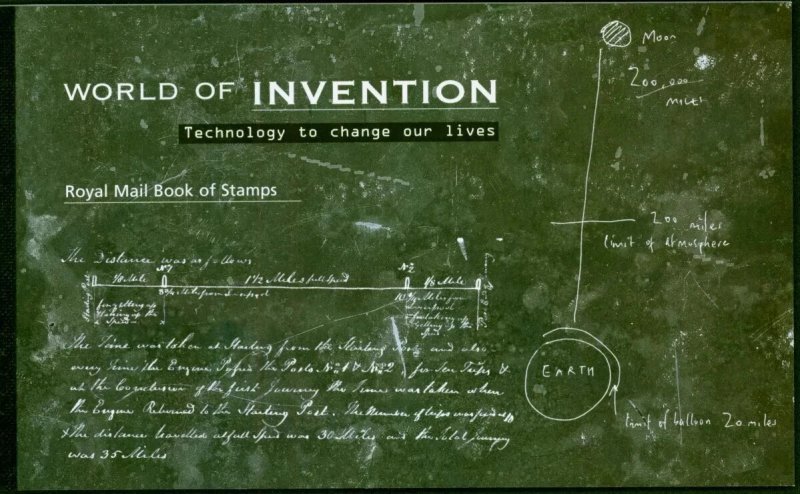 WORLD OF INVENTION
Technology to change our lives
Royal Mail Book of Stamps
Moon
200,000
MILES
200 miles
limit of atmosphere
EARTH
limit of balloon 20 miles
The Distance was as follows
Starting Post
1/8 Mile
No 1
1 1/2 Miles full Speed
No 2
1/8 Mile
for getting up
the
Speed
getting up the
Speed
The Time was taken at Starting from the Starting Post and also
every Time the Engine Pass'd the Posts No 1 & No 2 for Ten Trips &
at the Conclusion of the first Journey the Time was taken when
the Engine Returned to the Starting Post. The Number of trips was
& the distance travelled at full Speed was 30 Miles and the total journey
was 35 Miles